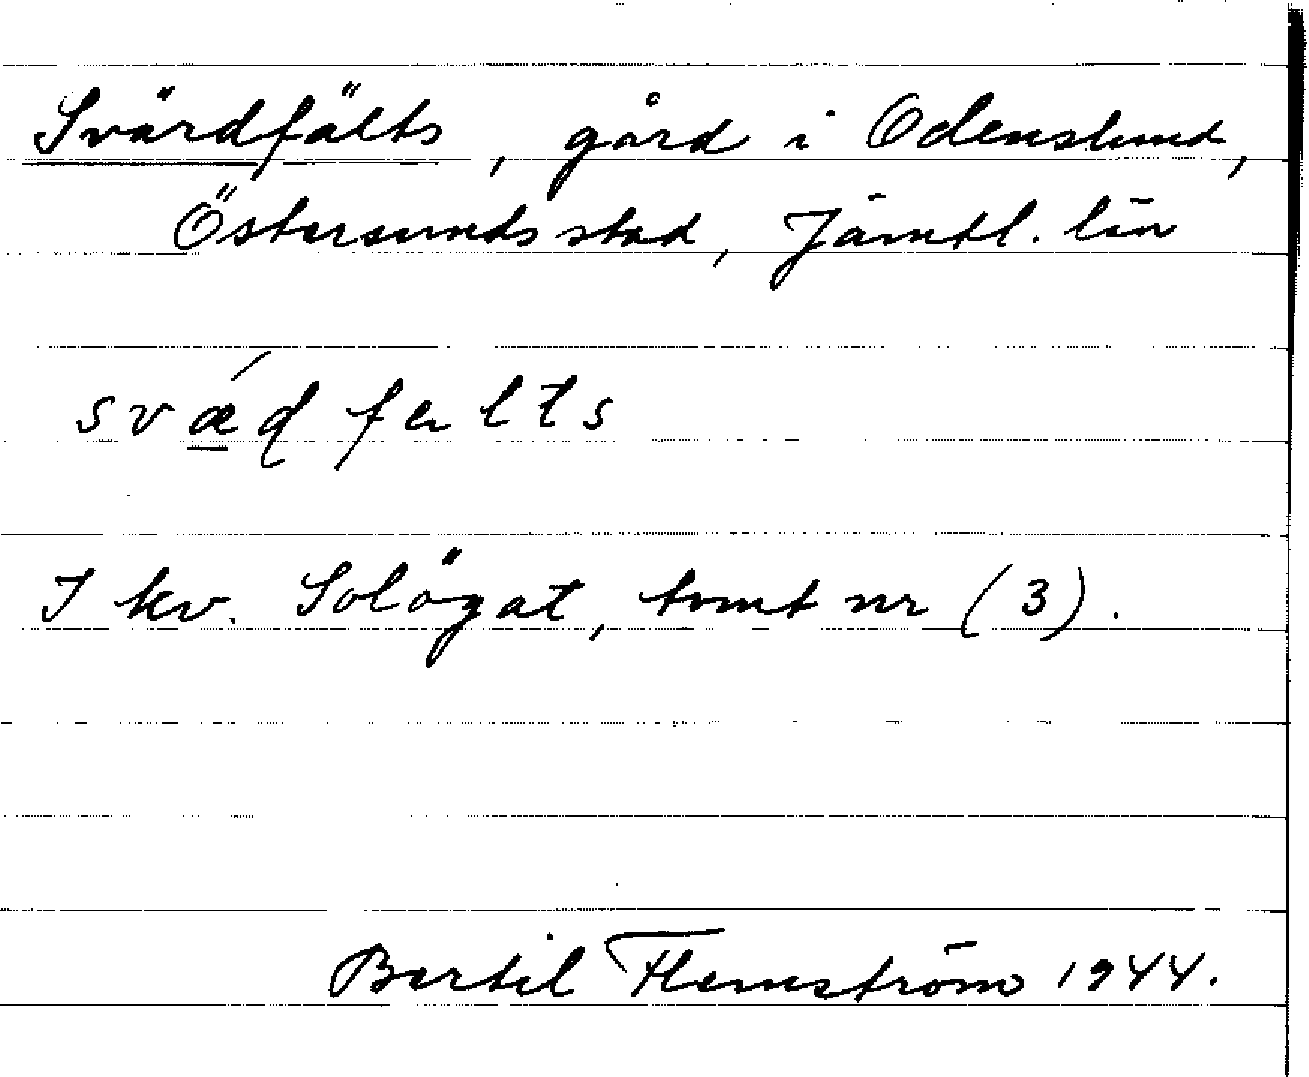 Svärdfälts, gård i Odenslund,
Östersunds stad, Jämtl. län
svǽɖfelts
I kv. Solögat, tomt nr (3).
Bertil Flemström 1944.